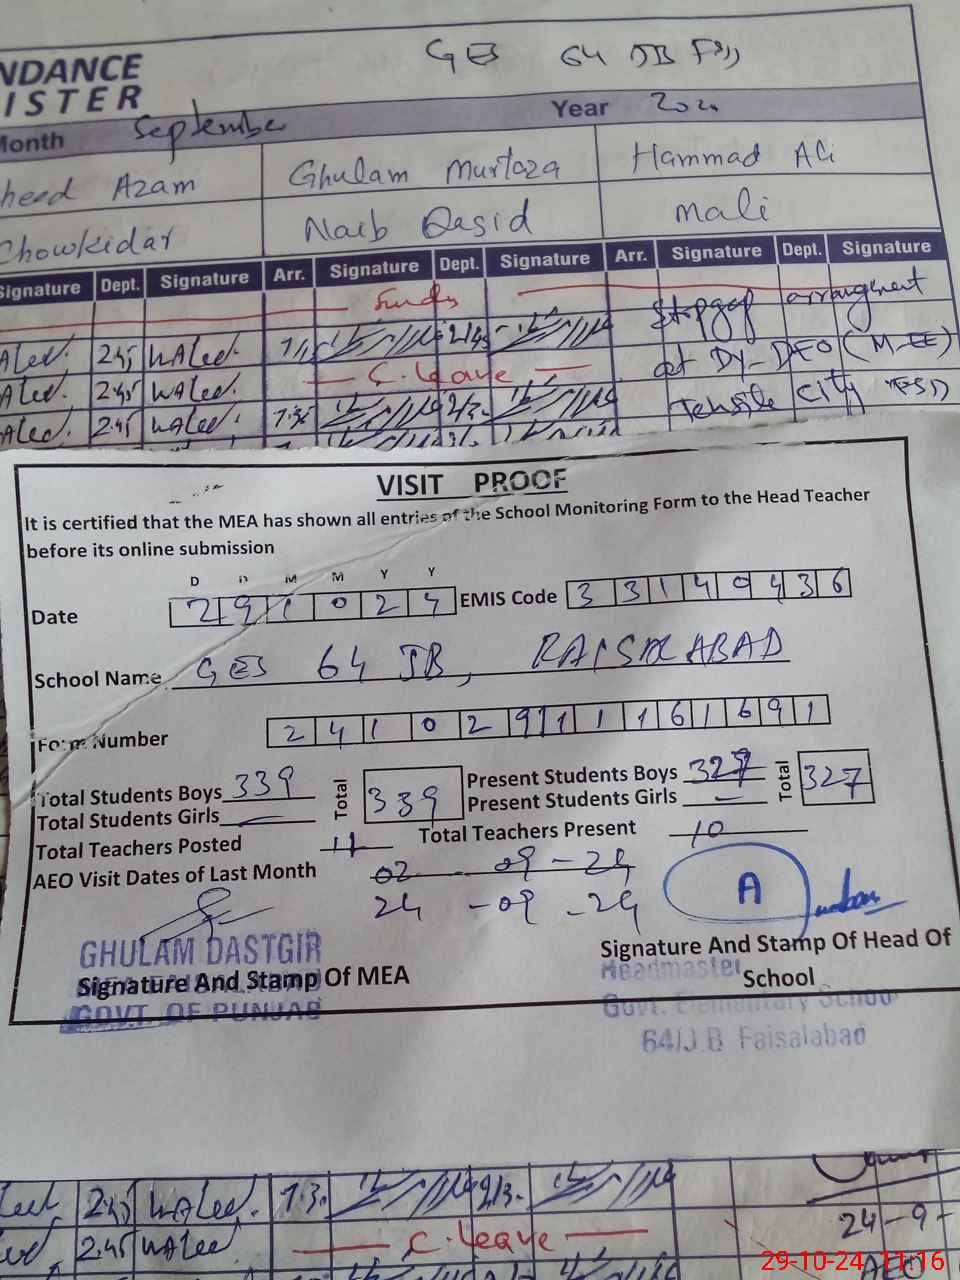 NDANCE
ISTER
GES 64 JB FSD
Month September Year 202
heed Azam Ghulam Murtaza Hammad Ali
Chowkidar Naib Qasid Mali
Signature Dept. Signature Arr. Signature Dept. Signature Arr. Signature Dept. Signature
Sunday
Stopgap arrangement
2:45 WAleed.
at DY-DEO (M-EE)
C. leave
2:45 WAleed.
Tehsile City FSD
2:45 WAleed. 7:30
VISIT PROOF
It is certified that the MEA has shown all entries of the School Monitoring Form to the Head Teacher
before its online submission
D D M M Y Y
Date 291024 EMIS Code 33140436
School Name GES 64 JB, FAISALABAD
Form Number 241029111616 91
Total Students Boys 339 Total 339 Present Students Boys 327 Total 327
Total Students Girls — Present Students Girls —
Total Teachers Posted 11 Total Teachers Present 10
AEO Visit Dates of Last Month 02-09-24
24-09-24
A
GHULAM DASTGIR
Signature And Stamp Of MEA
GOVT. OF PUNJAB
Signature And Stamp Of Head Of
School
Headmaster
Govt. Elementary School
64/J.B Faisalabad
2:45 WAleed. 7:3
24-9-
2:45 WAleed
C. leave
AEO
29-10-24 11:16